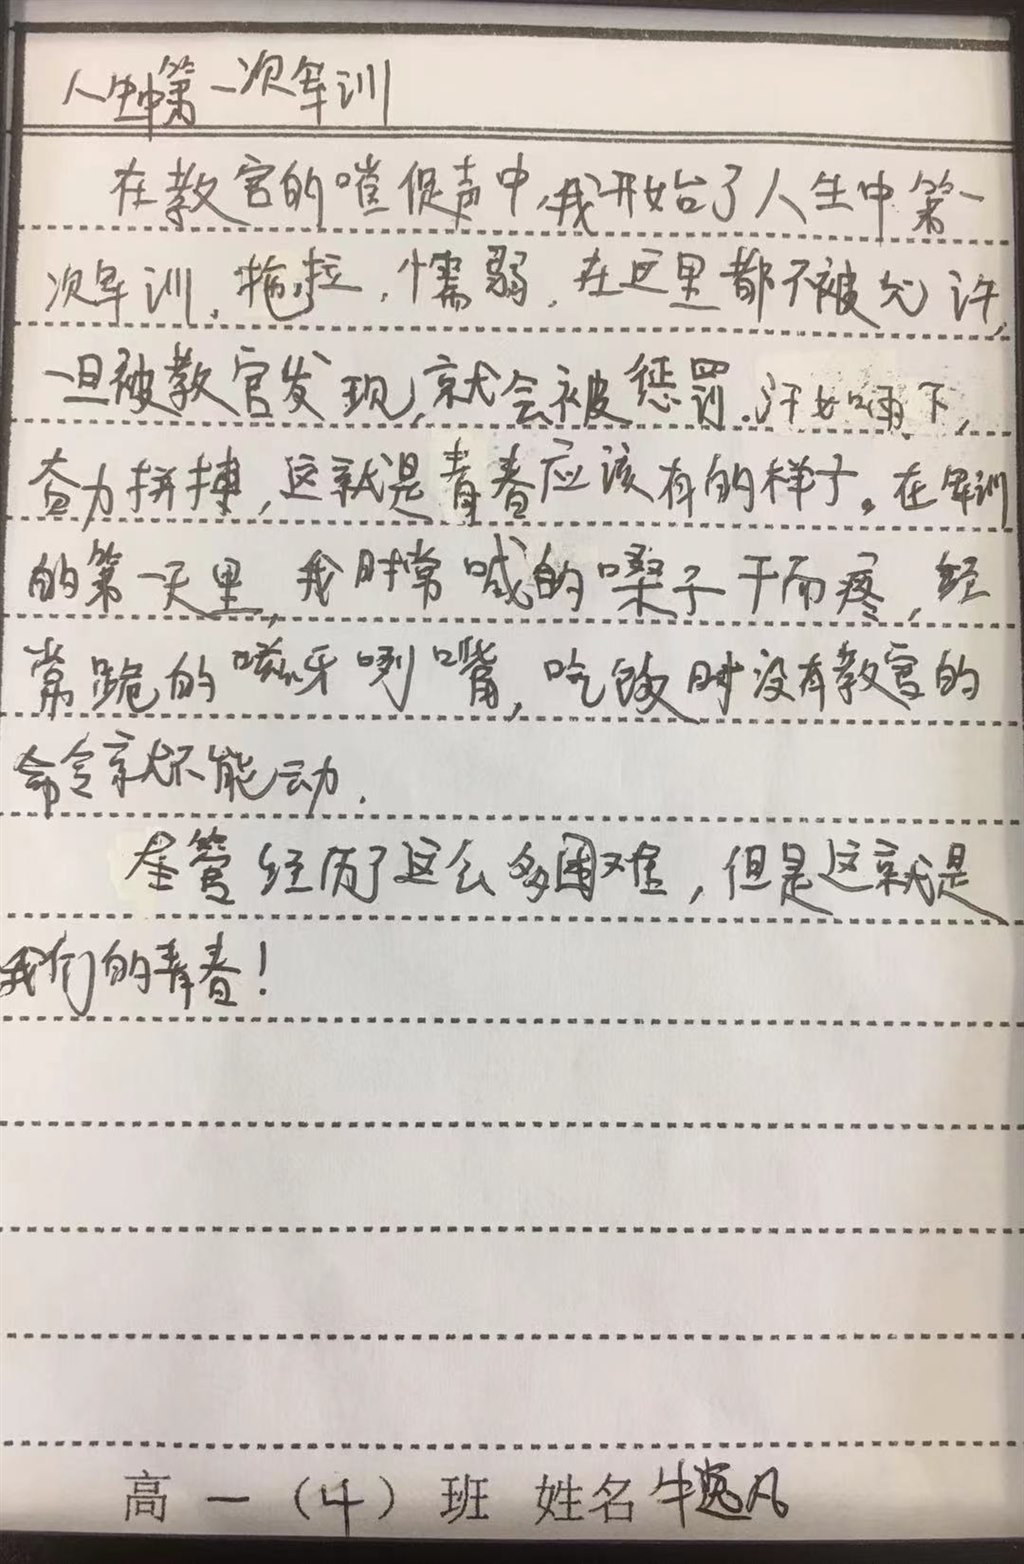 人生中第一次军训
在教官的嘡促声中,我开始了人生中第一
次军训,拖拉,懦弱,在这里都不被允许,
一旦被教官发现,就会被惩罚.汗如雨下,
奋力拼搏,这就是青春应该有的样子。在军训
的第一天里,我时常喊的嗓子干而疼,经
常跪的嗞牙咧嘴,吃饭时没有教官的
命令就不能动.
尽管经历了这么多困难,但是这就是
我们的青春!
高一(4)班 姓名牛逸凡